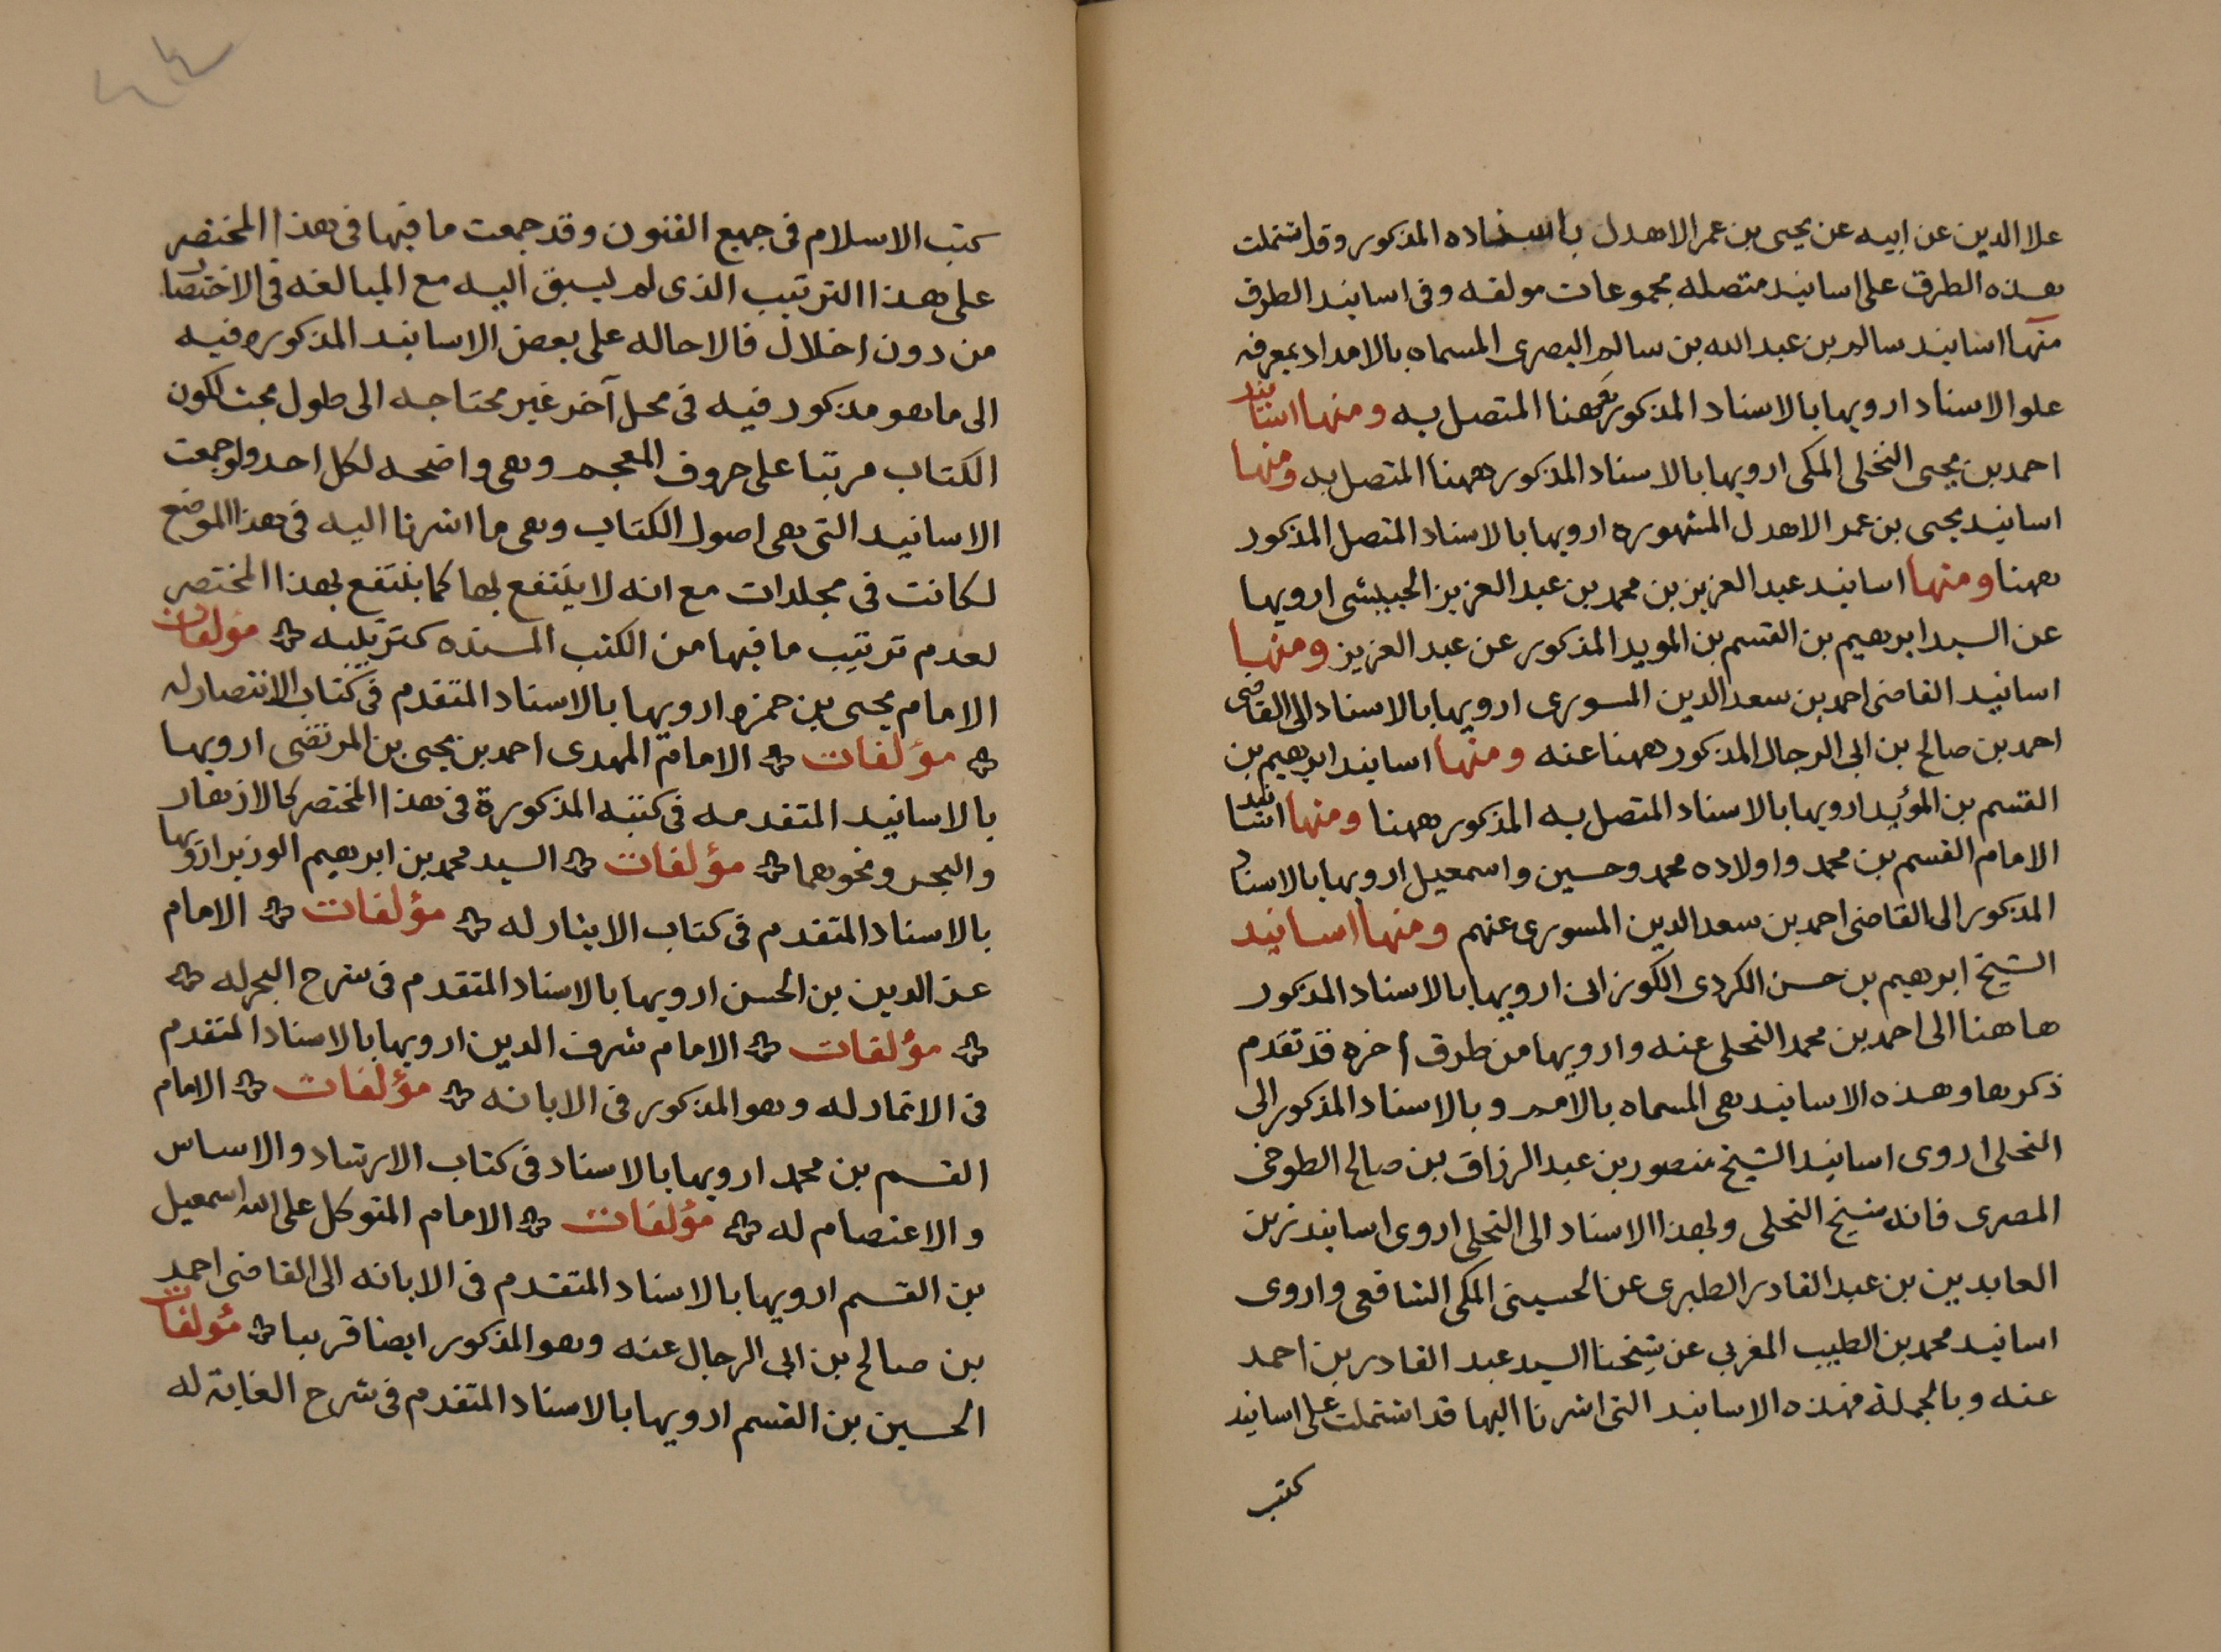 علا الدين عن ابيه عن يحيى بن عمر الاهدل باسناده المذكور وقد اشتملت
هذه الطرق على اسانيد متصله بمجموعات مولفه وفى اسانيد الطرق
منها اسانيد سالم بن عبد الله بن سالم البصرى المسماه بالامداد بمعرفه
علو الاسناد ارويها بالاسناد المذكور ههنا المتصل به ومنها اسانيد
احمد بن يحيى النخلى المكى ارويها بالاسناد المذكور ههنا المتصل به ومنها
اسانيد يحيى بن عمر الاهدل المشهوره ارويها بالاسناد المتصل المذكور
ههنا ومنها اسانيد عبد العزيز بن محمد بن عبد العزيز الحبيشى ارويها
عن السيد ابرهيم بن القسم بن المويد المذكور عن عبد العزيز ومنها
اسانيد القاضى احمد بن سعد الدين المسورى ارويها بالاسناد الى القاضى
احمد بن صالح بن ابى الرجال المذكور ههنا عنه ومنها اسانيد ابرهيم بن
القسم بن المؤيد ارويها بالاسناد المتصل به المذكور ههنا ومنها اسانيد
الامام القسم بن محمد واولاده محمد وحسين واسمعيل ارويها بالاسناد
المذكور الى القاضى احمد بن سعد الدين المسورى عنهم ومنها اسانيد
الشيخ ابرهيم بن حسن الكردى الكورانى ارويها بالاسناد المذكور
هاهنا الى احمد بن محمد النخلى عنه وارويها من طرق اخره قد تقدم
ذكرها وهذه الاسانيد هى المسماه بالامم وبالاسناد المذكور الى
النخلى اروى اسانيد الشيخ منصور بن عبد الرزاق بن صالح الطوخى
المصرى فانه شيخ النخلى وبهذا الاسناد الى النخلى اروى اسانيد زين
العابدين بن عبد القادر الطبرى عن الحسينى المكى الشافعى واروى
اسانيد محمد بن الطيب المغربى عن شيخنا السيد عبد القادر بن احمد
عنه وبالجملة فهذه الاسانيد التى اشرنا اليها قد اشتملت على اسانيد
كتب
كتب الاسلام فى جميع الفنون وقد جمعت ما فيها فى هذا المختصر
على هذا الترتيب الذى لم يسبق اليه مع المبالغه فى الاختصار
من دون اخلال فالاحاله على بعض الاسانيد المذكوره فيه
الى ما هو مذكور فيه فى محل آخر غير محتاجه الى طول بحث لكون
الكتاب مرتبا على حروف المعجم وهى واضحه لكل احد ولو جمعت
الاسانيد التى هى اصول الكتاب وهى ما اشرنا اليه فى هذا الموضع
لكانت فى مجلدات مع انه لا ينتفع بها كما ينتفع بهذا المختصر
لعدم ترتيب ما فيها من الكتب المسنده كترتيبه مؤلفات
الامام يحيى بن حمزه ارويها بالاسناد المتقدم فى كتاب الانتصار له
مؤلفات الامام المهدى احمد بن يحيى بن المرتضى ارويها
بالاسانيد المتقدمه فى كتبه المذكورة فى هذا المختصر كالازهار
والبحر ونحوهما مؤلفات السيد محمد بن ابرهيم الوزير ارويها
بالاسناد المتقدم فى كتاب الايثار له مؤلفات الامام
عز الدين بن الحسن ارويها بالاسناد المتقدم فى شرح البحر له
مؤلفات الامام شرف الدين ارويها بالاسناد المتقدم
فى الاثمار له وهو المذكور فى الابانه مؤلفات الامام
القسم بن محمد ارويها بالاسناد فى كتاب الارشاد والاساس
والاعتصام له مؤلفات الامام المتوكل على الله اسمعيل
بن القسم ارويها بالاسناد المتقدم فى الابانه الى القاضى احمد
بن صالح بن ابى الرجال عنه وهو المذكور ايضا قريبا مؤلفات
الحسين بن القسم ارويها بالاسناد المتقدم فى شرح الغاية له